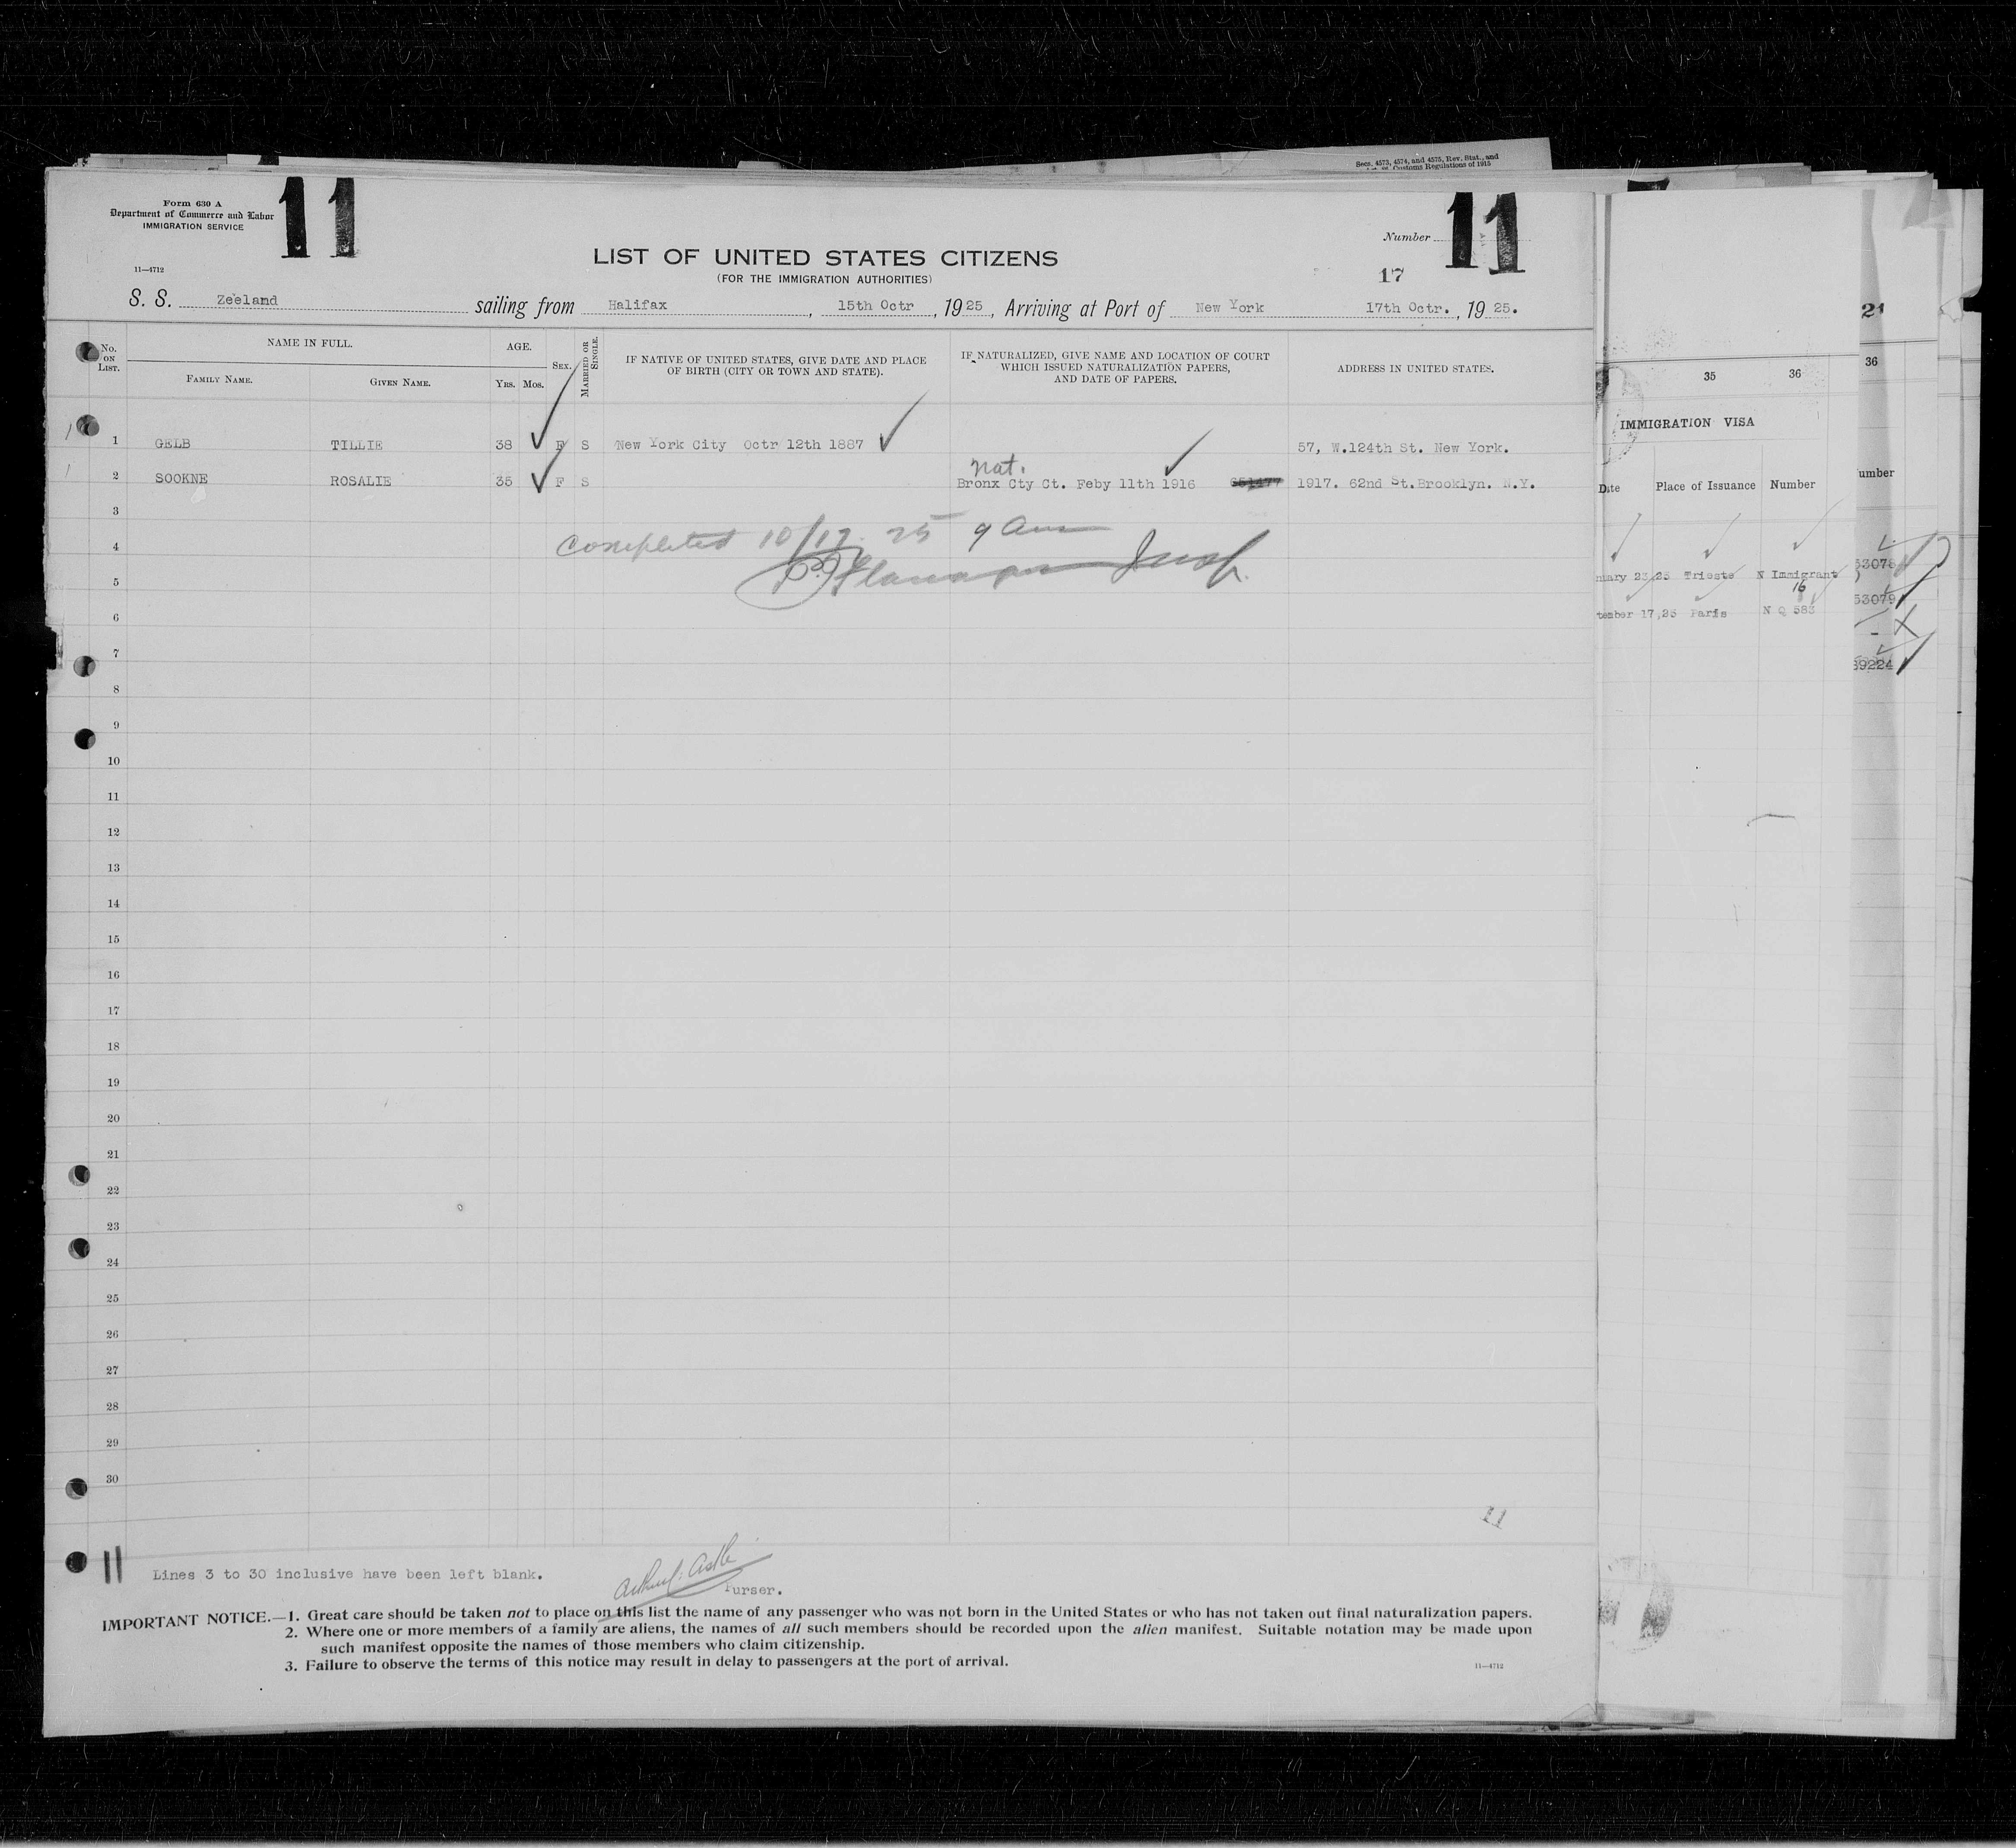 Secs. 4573, 4574, and 4575, Rev. Stat., and
Customs Regulations of 1915
Form 630 A
Department of Commerce and Labor
IMMIGRATION SERVICE
11
11—4712
Number
11
17
LIST OF UNITED STATES CITIZENS
(FOR THE IMMIGRATION AUTHORITIES)
S. S. Zeeland sailing from Halifax, 15th Octr, 1925, Arriving at Port of New York 17th Octr., 1925.
No. ON LIST.
NAME IN FULL.
FAMILY NAME.
GIVEN NAME.
AGE.
YRS. MOS.
SEX.
MARRIED OR SINGLE.
IF NATIVE OF UNITED STATES, GIVE DATE AND PLACE
OF BIRTH (CITY OR TOWN AND STATE).
IF NATURALIZED, GIVE NAME AND LOCATION OF COURT
WHICH ISSUED NATURALIZATION PAPERS,
AND DATE OF PAPERS.
ADDRESS IN UNITED STATES.
1 1 GELB TILLIE 38 F S New York City Octr 12th 1887 57, W.124th St. New York.
nat.
1 2 SOOKNE ROSALIE 35 F S Bronx Cty Ct. Feby 11th 1916 1917. 62nd St. Brooklyn. N.Y.
3
Completed 10/17 25 9 am
4
Insp.
5
6
7
8
9
10
11
12
13
14
15
16
17
18
19
20
21
22
23
24
25
26
27
28
29
30
11
11 Lines 3 to 30 inclusive have been left blank.
Purser.
IMPORTANT NOTICE.—1. Great care should be taken not to place on this list the name of any passenger who was not born in the United States or who has not taken out final naturalization papers.
2. Where one or more members of a family are aliens, the names of all such members should be recorded upon the alien manifest. Suitable notation may be made upon
such manifest opposite the names of those members who claim citizenship.
3. Failure to observe the terms of this notice may result in delay to passengers at the port of arrival.
11—4712
35 36
IMMIGRATION VISA
Date Place of Issuance Number
nuary 23,25 Trieste N Immigrant
16
tember 17,25 Paris N Q 583
21
36
umber
53078
53079
-
39224